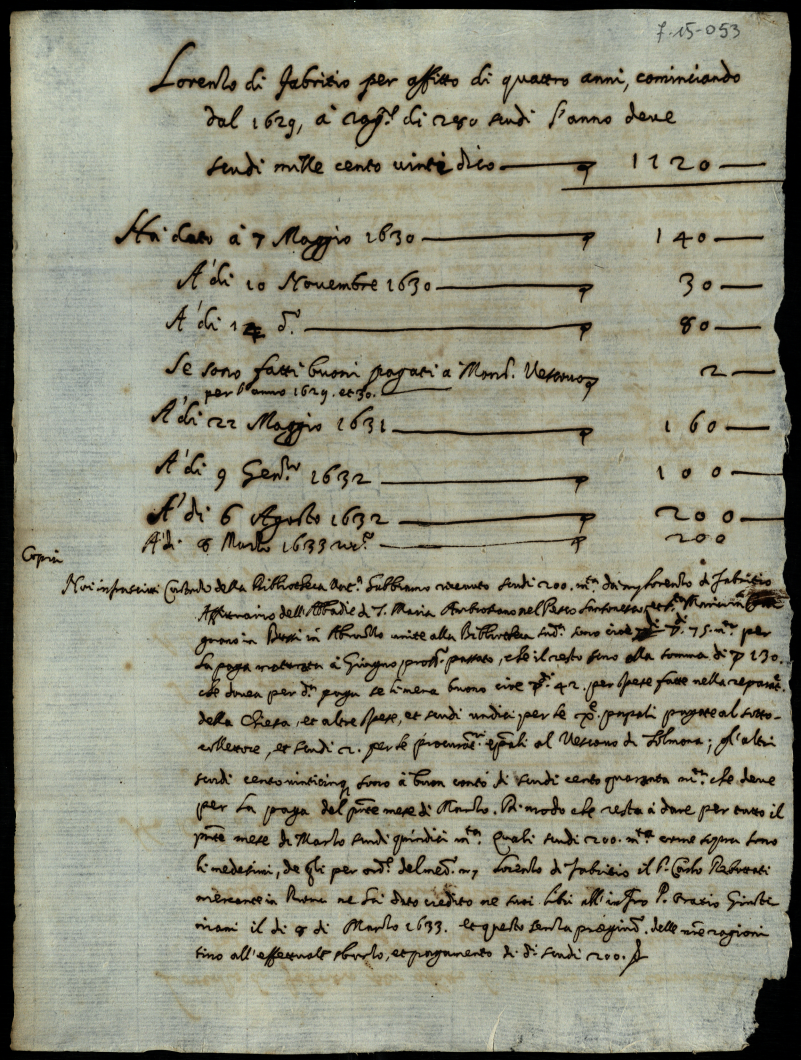 7-15-053
Lorenzo di Fabritio per affitto di quattro anni, cominciando
dal 1629, à rag.e di 280 scudi l'anno deve
scudi mille cento vinti dico 1120
Hà dato à 7 Maggio 1630 140
A' di 10 Novembre 1630 30
A' di d.o 80
Se sono fatti buoni pagati a Mons.r Vescovo 2
per l'anno 1629. et 30.
A' di 22 Maggio 1631 160
A' di 9 Gen.ro 1632 100
A' di 6 Agosto 1632 200
A' di 8 Marzo 1633 200
Copia
Noi infrascritti Custode della Bibliotheca Vat.a habbiamo ricevuto scudi 200. m.ta da Lorenzo di Fabritio
Affittuario dell'Abbadie di S. Maria
in Bussi in Abruzzo unite alla Bibliotheca sud.a sono cioè 75. m.ta per
la paga maturata à Giugno pross.o passato, che il resto sino alla somma di 130.
che dovea per d.a paga se li mena buono cioè 42. per spese fatte nella reparat.e
della Chiesa, et altre spese, et scudi undici per le X.e papali pagate al sotto-
collettore, et scudi 2. per le al Vescovo di Solmona; gl'altri
scudi centovinticinq sono à buon conto di scudi cento quaranta m.ta che deve
per la paga del pnte mese di Marzo. Di modo che resta à dare per tutto il
pnte mese di Marzo scudi quindici m.ta Quali scudi 200. m.ta come sopra sono
li medesimi, de q.li per ord.e del med.o Lorenzo di Fabritio il S.r Carlo
mercante in Roma ne hà dato credito ne suoi libri all' P. Oratio Giusti
niani il di 8 di Marzo 1633. et questo senza pregiud.o delle nre ragioni
sino all'effettuale sborzo, et pagamento di d.i scudi 200.